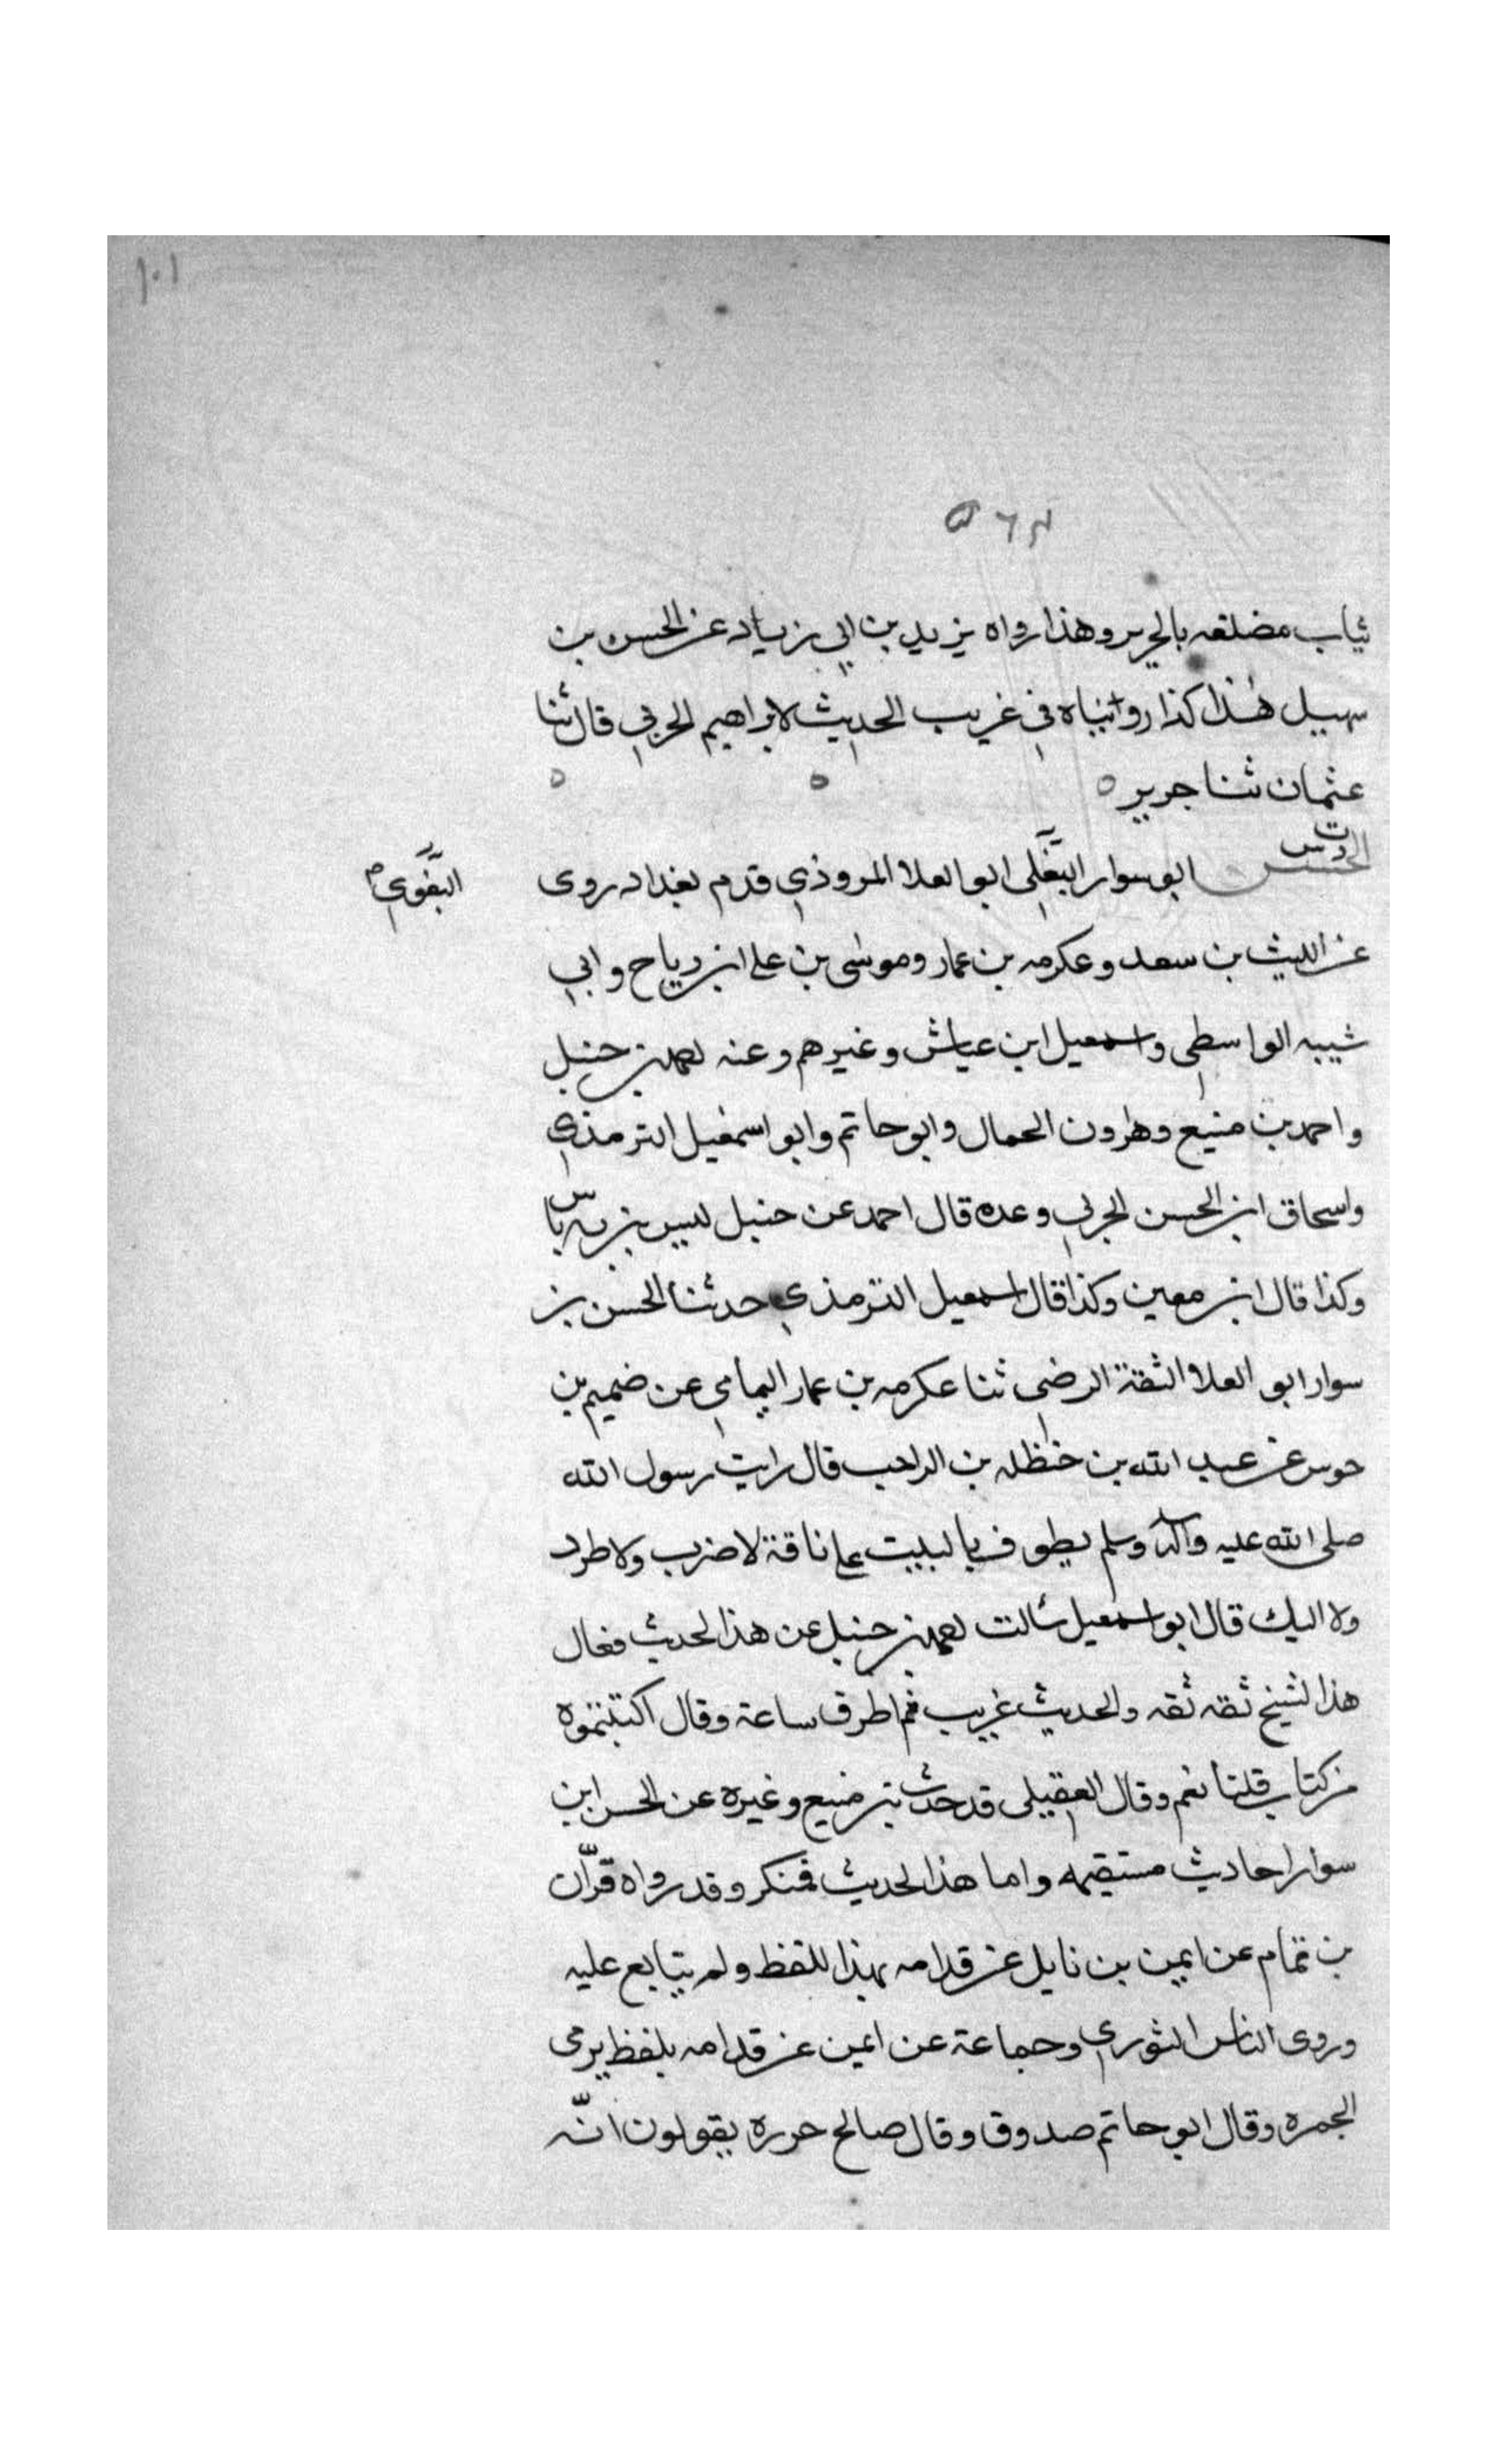 ١٠١
ثياب مضلعه بالحرير وهذا رواه يزيد بن ابي زياد عن الحسن بن
سهيل هذا كذا رويناه في غريب الحديث لابراهيم الحربي قال ثنا
عثمان ثنا جرير ه ه ه
الحسن ابو سوار البغلي ابو العلا المروذي قدم بغداد روى
البغوي
عن الليث بن سعد وعكرمه بن عمار وموسى بن علي ابن رباح وابي
شيبه الواسطي واسمعيل ابن عياش وغيرهم وعنه احمد بن حنبل
واحمد بن منيع وهرون الحمال وابو حاتم وابو اسمعيل الترمذي
واسحاق ابن الحسن الحربي وعده قال احمد عن حنبل ليس به باس
وكذا قال ابن معين وكذا قال اسمعيل الترمذي حدثنا الحسن بن
سوار ابو العلا الثقة الرضي ثنا عكرمه بن عمار اليمامي عن ضمضم بن
جوس عن عبد الله بن حنظله بن الراهب قال رايت رسول الله
صلى الله عليه وآله وسلم يطوف بالبيت على ناقة لا ضرب ولا طرد
ولا اليك قال ابو اسمعيل سالت احمد بن حنبل عن هذا الحديث فقال
هذا الشيخ ثقه ثقه والحديث غريب ثم اطرق ساعة وقال اكتبتموه
من كتاب قلنا نعم وقال العقيلي قد حدث بن منيع وغيره عن الحسن ابن
سوار احاديث مستقيمه واما هذا الحديث فمنكر وقد رواه قرّان
بن تمام عن ايمن بن نايل عن قدامه بهذا اللفظ ولم يتابع عليه
وروى الناس الثوري وجماعة عن ايمن عن قدامه بلفظ يرمى
الجمره وقال ابو حاتم صدوق وقال صالح جزره يقولون انّه